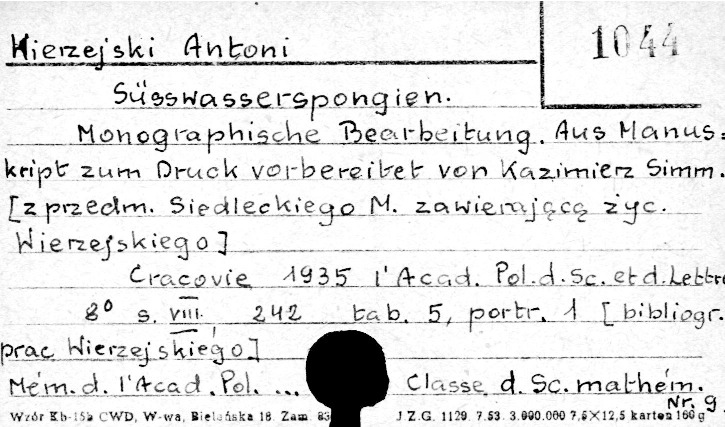 Wierzejski Antoni
1044
Süsswasserspongien.
Monographische Bearbeitung. Aus Manus=
kript zum Druck vorbereitet von Kazimierz Simm.
[z przedm. Siedleckiego M. zawierającą życ.
Wierzejskiego]
Cracovie 1935 l'Acad. Pol. d. Sc. et d. Lettre
8° s. VIII. 242 tab. 5, portr. 1 [bibliogr.
prac Wierzejskiego]
Mém. d. l'Acad. Pol. ... Classe d. Sc. mathém.
Nr. 9
Wzór Kb-15a CWD, W-wa, Bielańska 18. Zam. 83 J.Z.G. 1129. 7.53. 3.000.000 7,5×12,5 karton 160 g